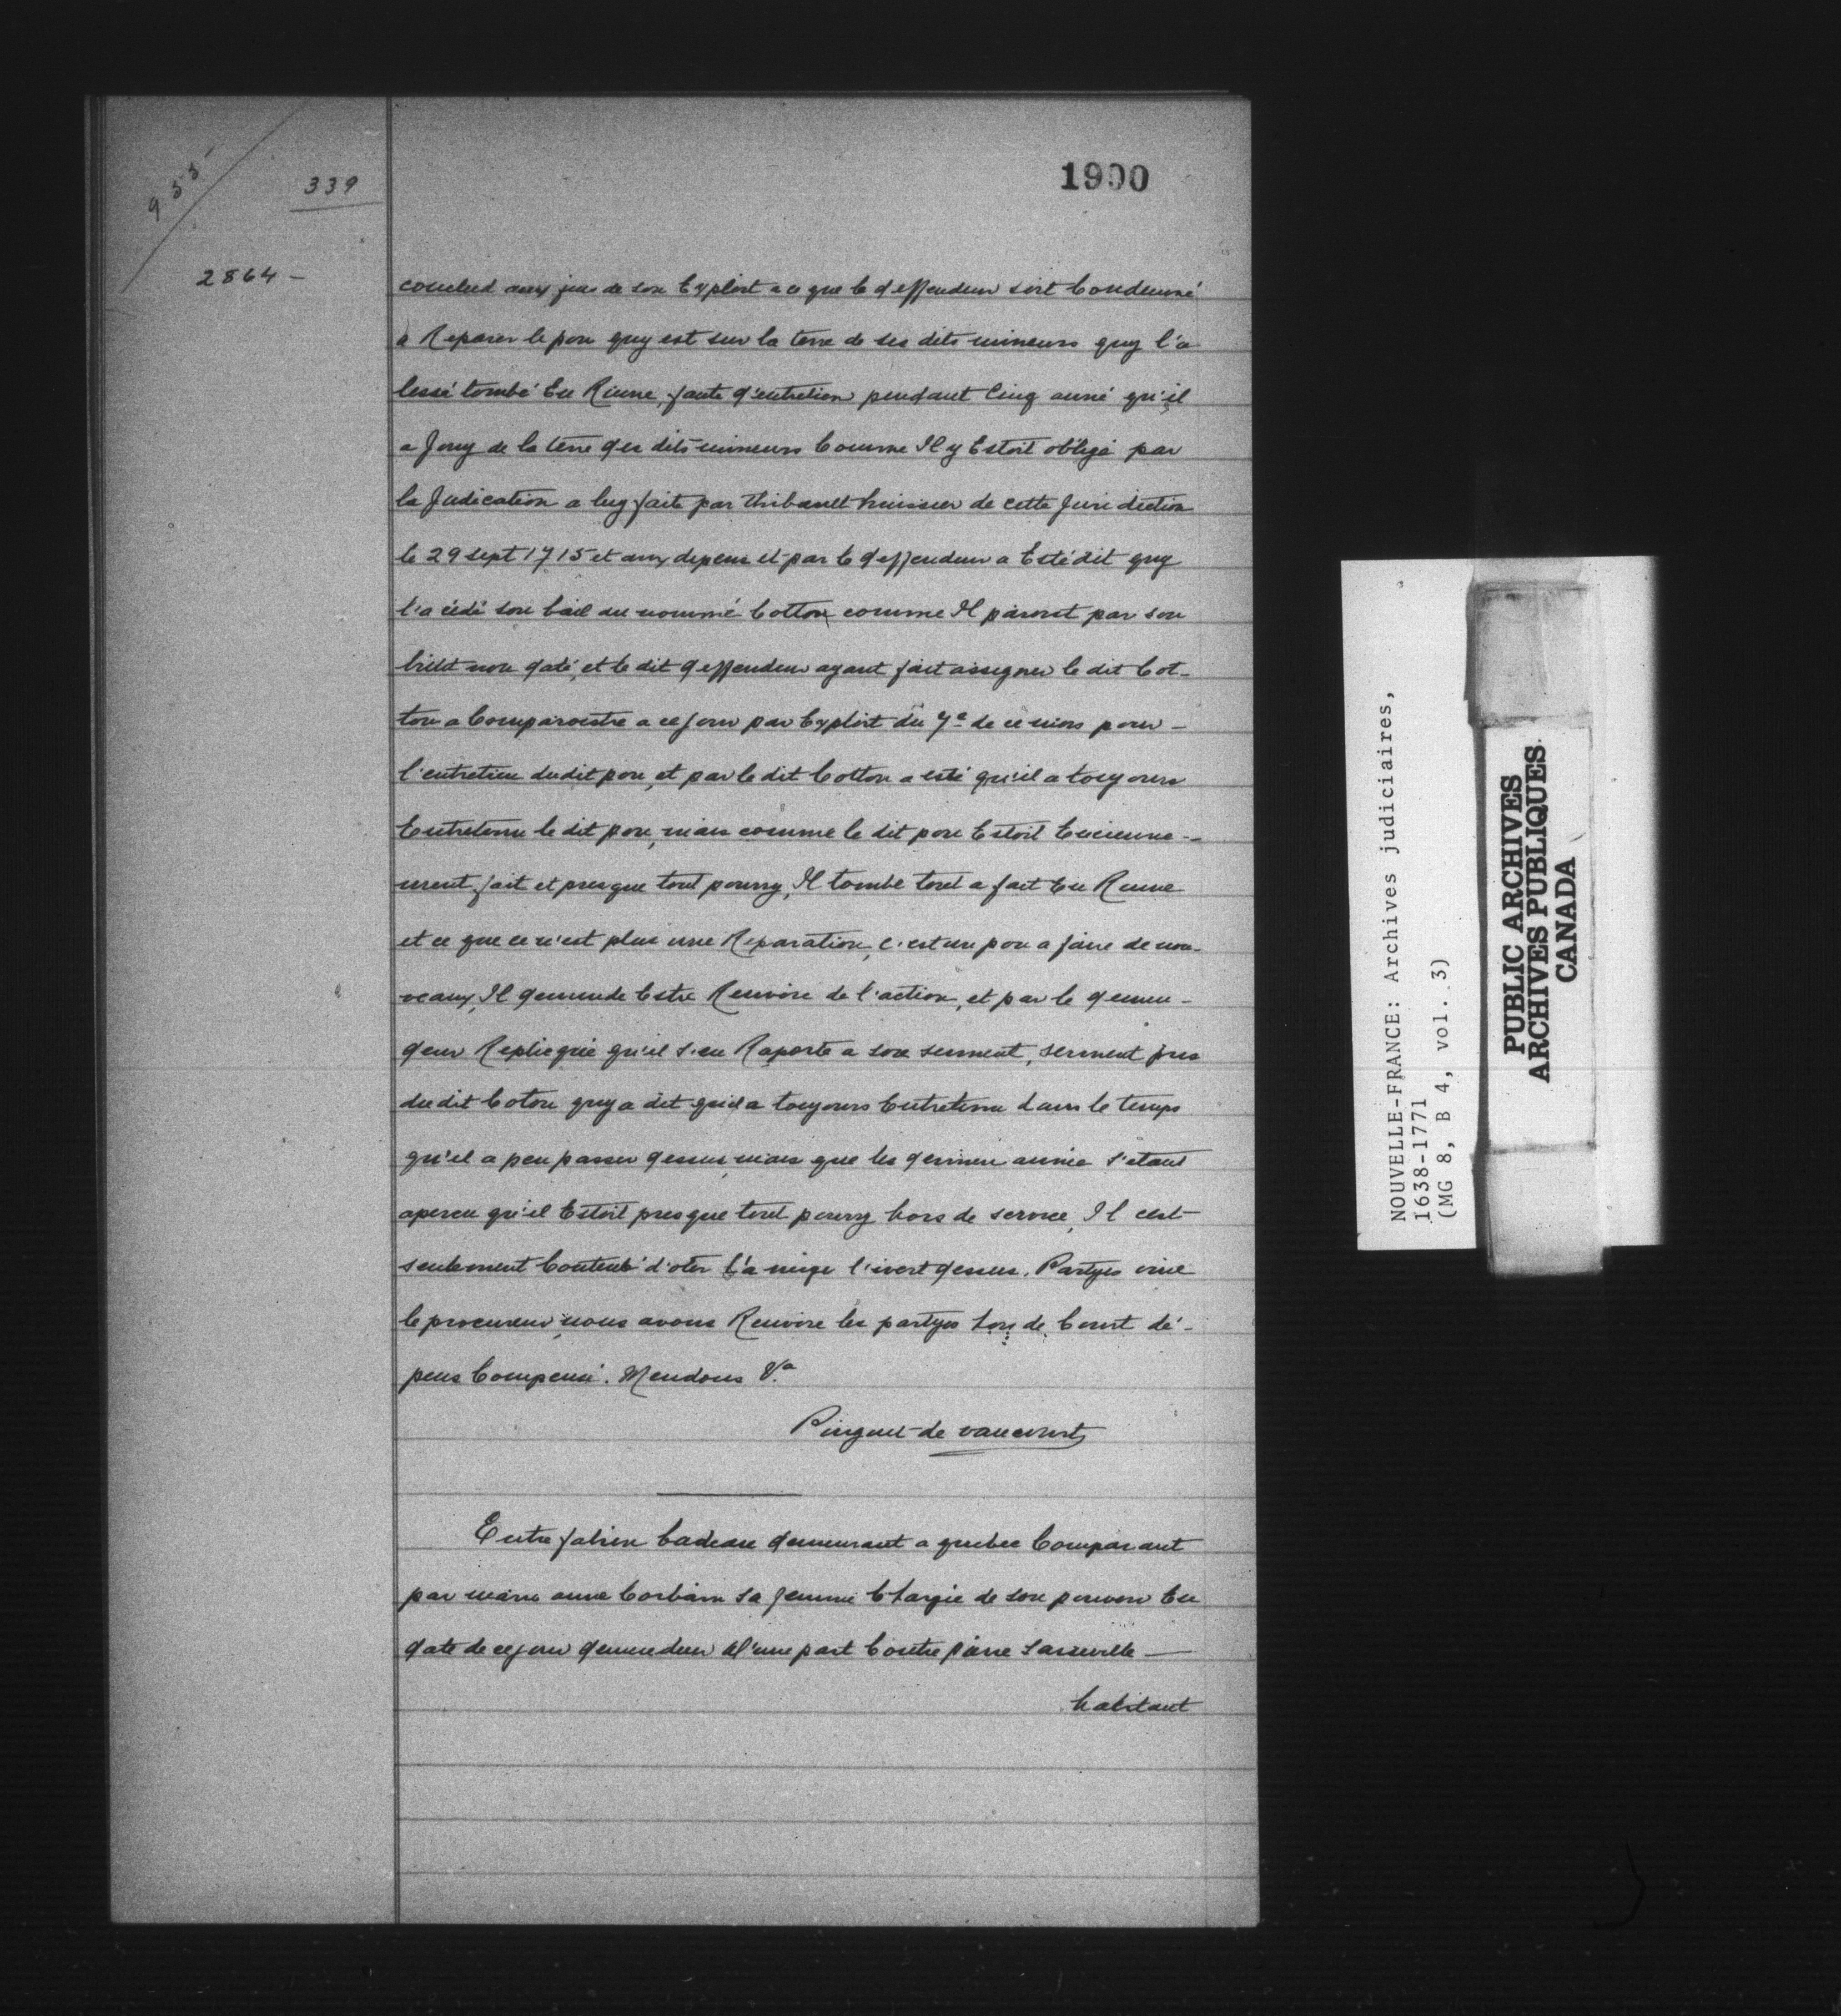 935
339
1900
2864 -
conclud aux fins de son Exploit a ce que le deffendeur soit Condemné
a Reparer le pon quy est sur la terre de ses dits mineurs quy l'a
lessé tombé En Riune, faute d'entretien pendant Cinq anné qu'il
a Jouy de la terre des dits mineurs Comme Il y Estoit obligé par
la Judication a luy faite par Thibault huissier de cette Juridiction
le 29 sept 1715 et aux depens et par le deffendeur a Esté dit quy
l'a cédé son bail au nommé Cotton comme Il paroist par son
billet non daté, et le dit deffendeur ayant fait assigner le dit Cot-
ton a Comparoistre a ce jour par Exploit du 7e de ce mois pour -
l'entretien dudit pon, et par le dit Cotton a esté qu'il a toujours
Entretenu le dit pon, mais comme le dit pon Estoit Encienne-
ment fait et presque tout pourry, Il tombe tout a fait En Ruine
et ce que ce n'est plus une Reparation, c'est un pon a faire de nou-
veaux, Il demende Estre Renvoie de l'action, et par le demen-
deur Replicquie qu'il s'en Raporte a son serment, serment pris
du dit Coton quy a dit qu'il a toujours Entretenu dans le temps
qu'il a peu passer dessus, mais que les derniere année s'etant
aperceu qu'il Estoit presque tout pourry hors de service, Il cest
seulement Contenté d'oter l'a neige l'ivert dessus. Partyes ouie
le procureur, nous avons Renvoie les partyes hors de Court dé-
pens Compensé. Mendons &a
Pinguet de vaucourt
Entre fabien badeau demeurant a quebec Comparant
par marie anne Corbain sa femme Chargie de son pouvoir En
date de ce jour demendeur d'une part Contre pierre Lasseville —
habitant
NOUVELLE-FRANCE: Archives judiciaires,
1638-1771
(MG 8, B 4, vol. 3)
PUBLIC ARCHIVES
ARCHIVES PUBLIQUES
CANADA